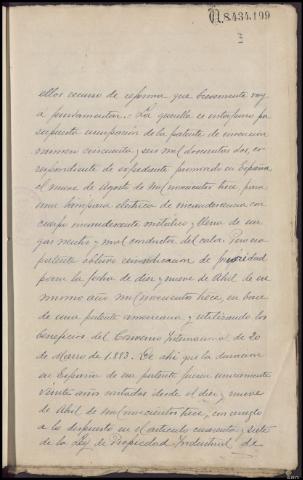 N.8.434.199
ellos recurso de reforma que brevemente voy
a fundamentar.- La querella es interpuesta por
supuesta usurpación de la patente de invención
número cincuenta y seis mil doscientos dos, co-
rrespondiente de expediente promovido en España
el nueve de Agosto de mil novecientos trece, para
una lámpara eléctrica de incandescencia con
cuerpo incandescente metálico y lleno de un
gas inerte y mal conductor del calor. Pero esa
patente obtuvo reivindicación de prioridad
para la fecha de diez y nueve de Abril de ese
mismo año mil novecientos trece, en base
de una patente americana y utilizando los
beneficios del Convenio Internacional de 20
de Marzo de 1.883. De ahí que la duración
en España de su patente fuera únicamente
veinte años contados desde el diez y nueve
de Abril de mil novecientos trece, con arreglo
a lo dispuesto en el artículo cuarenta y siete
de la Ley de Propiedad Industrial de